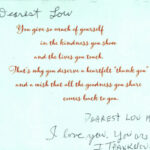 Dearest Lou
You give so much of yourself
in the kindness you show
and the lives you touch.
That's why you deserve a heartfelt "thank you"
and a wish that all the goodness you share
comes back to you.
DEAREST LOU
I love you. You are
I THANKFUL